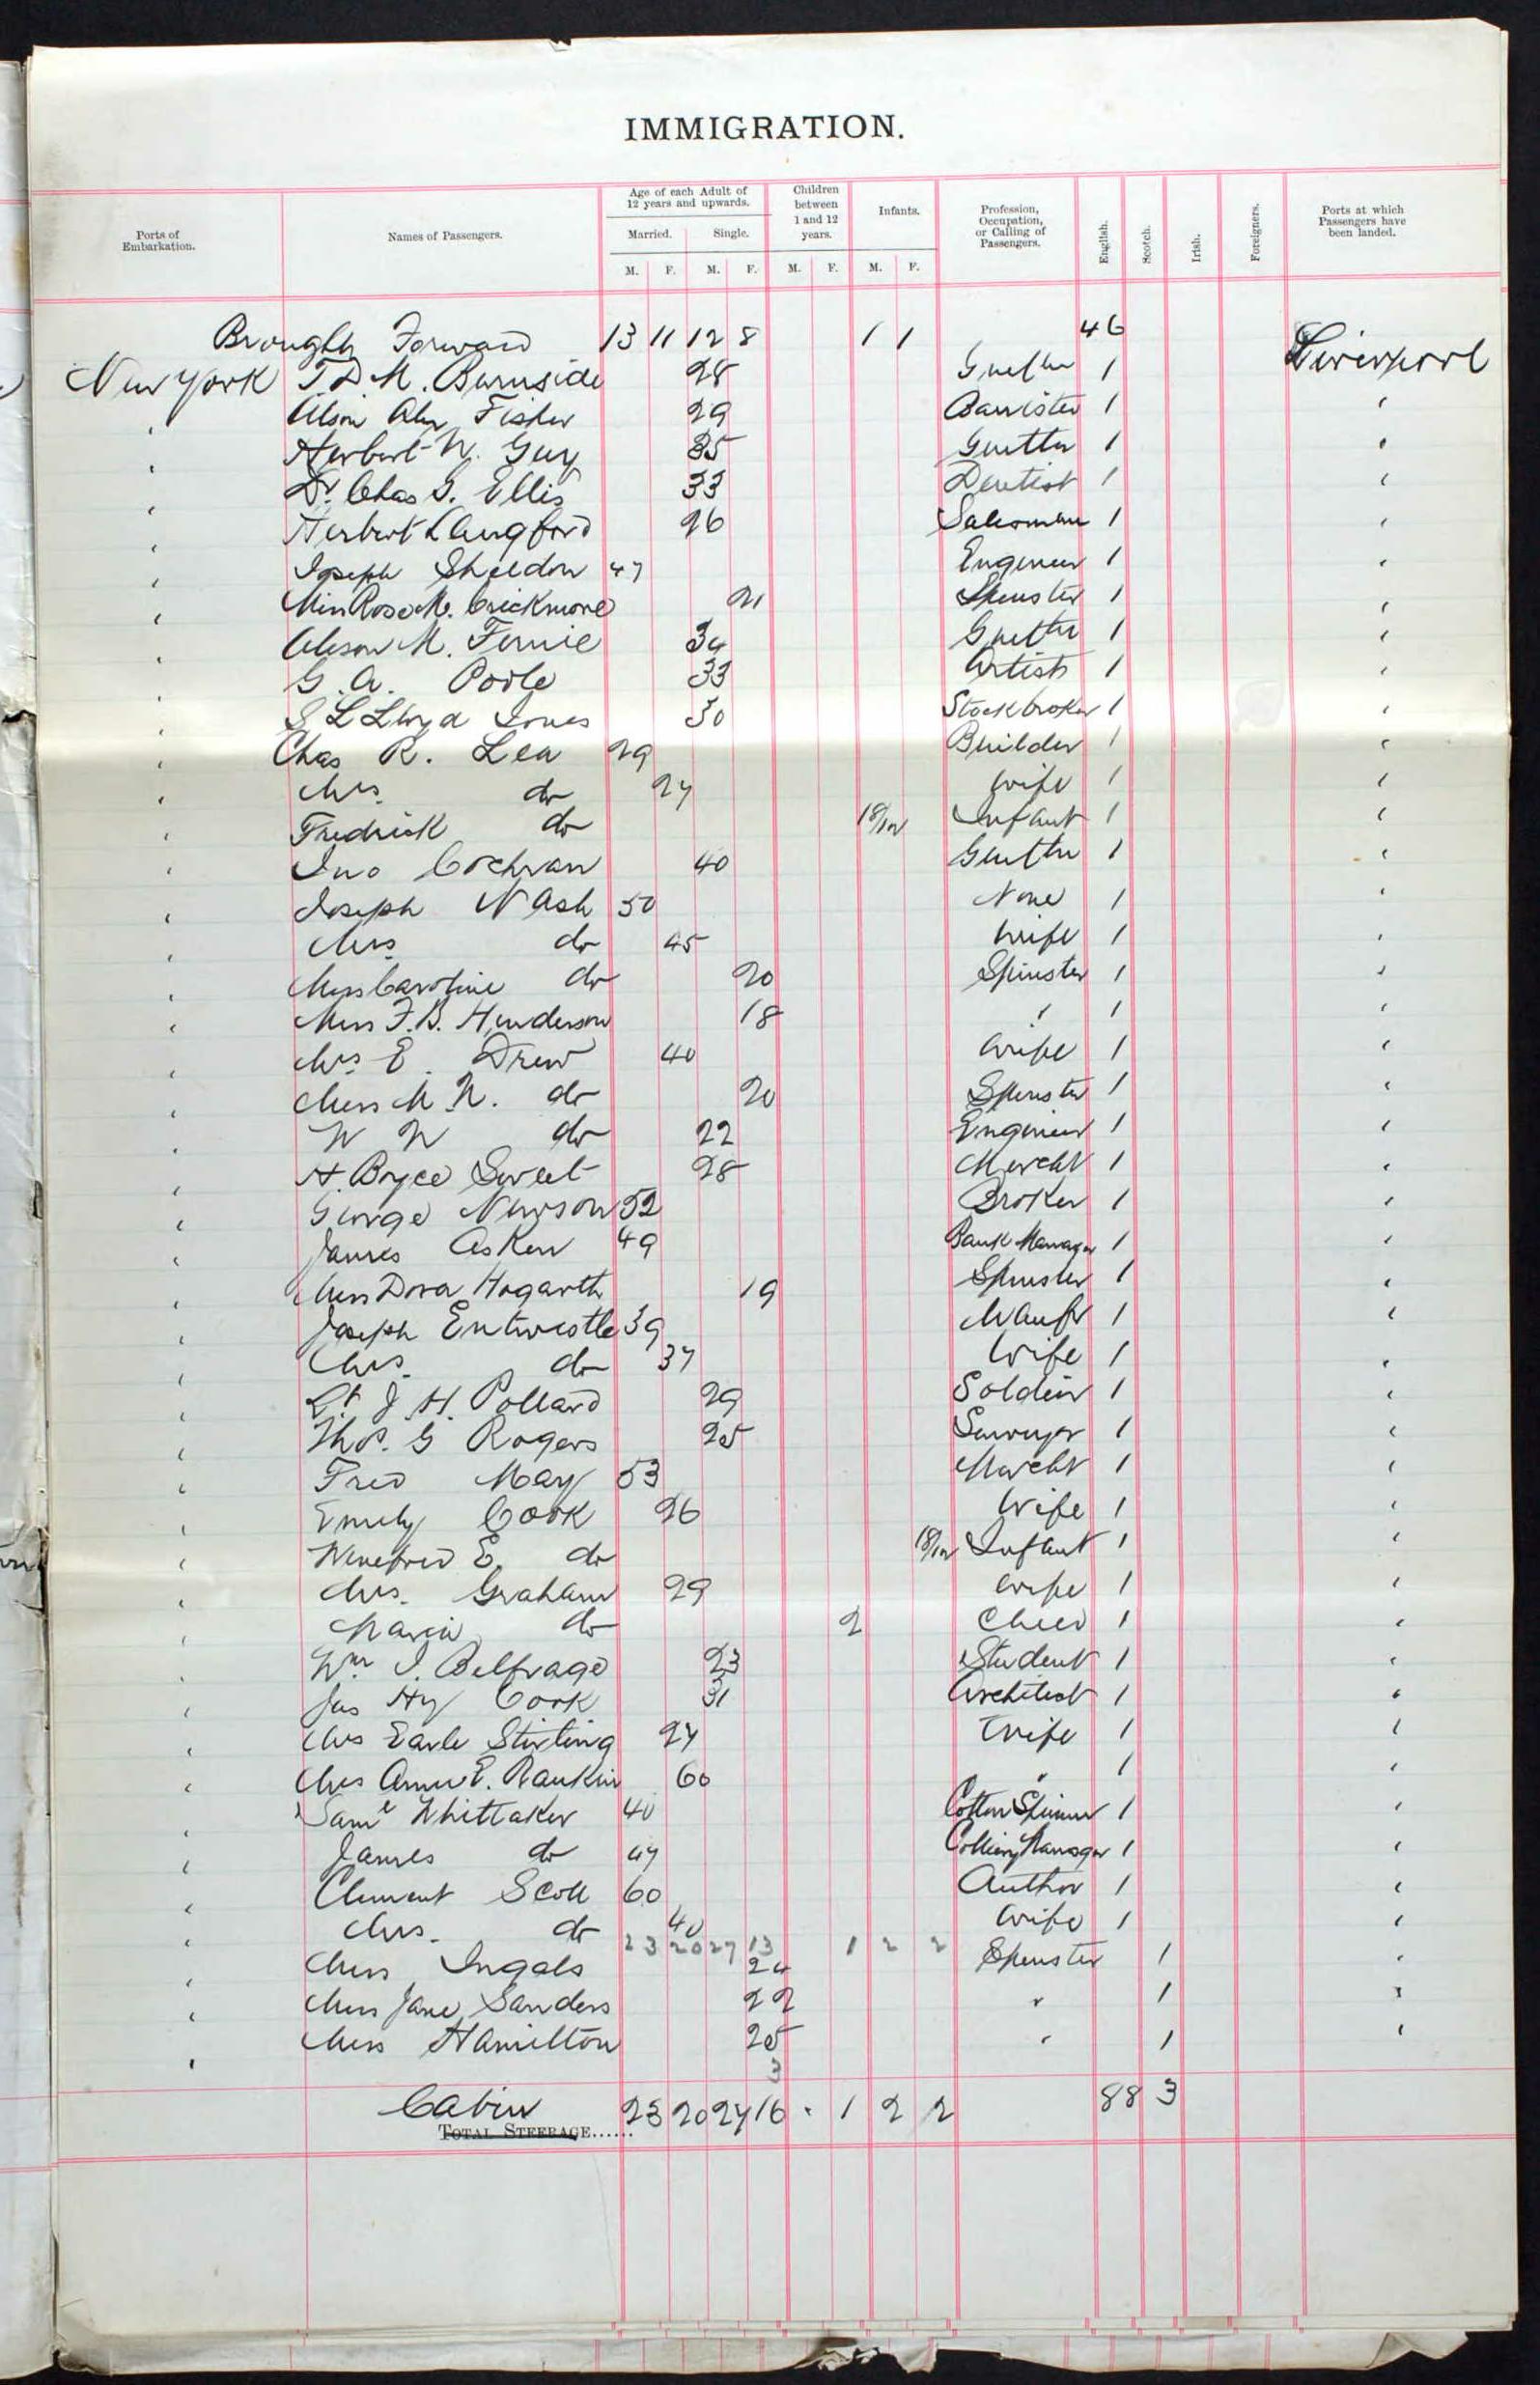 IMMIGRATION.
Ports of Embarkation. Names of Passengers. Age of each Adult of 12 years and upwards. Married. Single. Children between 1 and 12 years. Infants. Profession, Occupation, or Calling of Passengers. English. Scotch. Irish. Foreigners. Ports at which Passengers have been landed.
M. F. M. F. M. F. M. F.
Brought Forward 13 11 12 8 1 1 46
New York T. D. M. Burnside 28 1 Liverpool
Fisher 29 Barrister 1
Herbert N. Guy 35 1
Dr. Chas G. Ellis 33 Dentist 1
Herbert Langford 26 Salesman 1
Joseph Sheldon 47 Engineer 1
Miss Rose M. Crickmore 21 Spinster 1
M. Fernie 34 1
G. A. Poole 33 Artist 1
S L Lloyd Jones 30 Stockbroker 1
Chas R. Lea 29 Builder 1
Mrs. do 27 Wife 1
Fredrick do 18/12 Infant 1
Jno Cochran 40 1
Joseph Nash 50 None 1
Mrs. do 45 Wife 1
Miss Caroline do 20 Spinster 1
Miss F. B. Henderson 18 " 1
Mrs E. Drew 40 Wife 1
Miss M N. do 20 Spinster 1
W N do 22 Engineer 1
H. Bryce Sweet 28 Mercht 1
George Newson 52 Broker 1
James Askew 49 Bank Manager 1
Miss Dora Hogarth 19 Spinster 1
Joseph Entwistle 39 Manfr 1
Mrs. do 37 Wife 1
Lt. J. H. Pollard 29 Soldier 1
Thos. G Rogers 25 Surveyor 1
Fred May 53 Mercht 1
Emily Cook 26 Wife 1
Winefred E. do 18/12 Infant 1
Mrs. Graham 29 Wife 1
Marie do 2 Child 1
Wm J. Belfrage 23 Student 1
Jas Hy Cook 31 Architect 1
Mrs Earle Stirling 27 Wife 1
Mrs Annie E. Rankin 60 " 1
Saml Whittaker 40 Cotton Spinner 1
James do 47 Colliery Manager 1
Clement Scott 60 Author 1
Mrs. do 40 Wife 1
23 20 27 13 1 2 2
Miss Ingals 24 Spinster 1
Miss Jane Sanders 22 " 1
Miss Hamilton 25 " 1
3
Cabin 23 20 27 16 " 1 2 2 88 3
TOTAL STEERAGE......